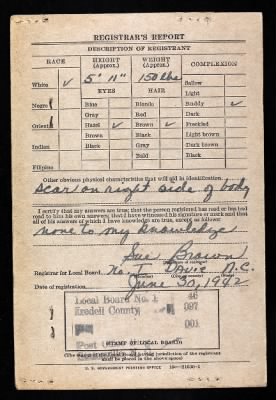 REGISTRAR'S REPORT
DESCRIPTION OF REGISTRANT
RACE HEIGHT (Approx.) WEIGHT (Approx.) COMPLEXION
White ✓ 5' 11" 150 lbs Sallow
EYES HAIR Light
Negro Blue Blonde Ruddy ✓
Gray Red Dark
Oriental Hazel ✓ Brown ✓ Freckled
Brown Black Light brown
Indian Black Gray Dark brown
Bald Black
Filipino
Other obvious physical characteristics that will aid in identification
Scar on right side of body
I certify that my answers are true; that the person registered has read or has had read to him his own answers; that I have witnessed his signature or mark and that all of his answers of which I have knowledge are true, except as follows:
none to my knowledge
Sue Brown
Registrar for Local Board No. 1 Davie N.C.
Date of registration June 30, 1942
Local Board No. 1 46
Iredell County 097
001
Post
(STAMP OF LOCAL BOARD)
(The stamp of the Local Board having jurisdiction of the registrant shall be placed in the above space)
U. S. GOVERNMENT PRINTING OFFICE 16—21630-1